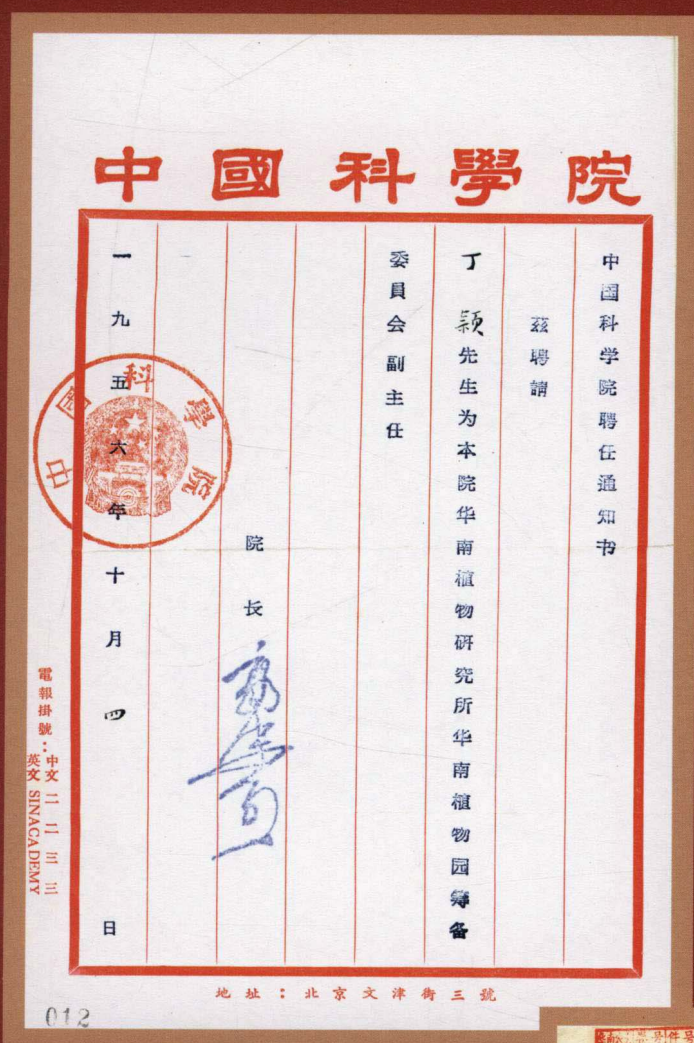 中國科學院
中国科学院聘任通知书
茲聘請
丁颖先生为本院华南植物研究所华南植物园筹备
委員会副主任
院长
一九五六年十月四日
中國科學院
電報掛號：中文二二三三
英文 SINACADEMY
地址：北京文津街三號
012